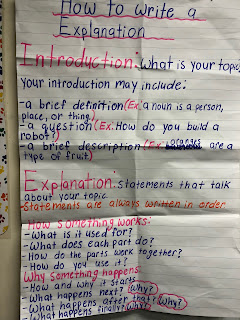 How to write a
Explanation
Introduction: What is your topic
Your introduction may include:
-a brief definition (Ex: a noun is a person,
place, or thing.)
-a question (Ex: How do you build a
robot?)
-a brief description (Ex: oranges are a
type of fruit)
Explanation: statements that talk
about your topic
-Statements are always written in order.
How something works:
-What is it used for?
-What does each part do?
-How do the parts work together?
-How do you use it?
Why something happens:
-How and why it starts
-What happens next? (Why?)
-What happens after that? (Why?)
-What happens finally? (Why?)